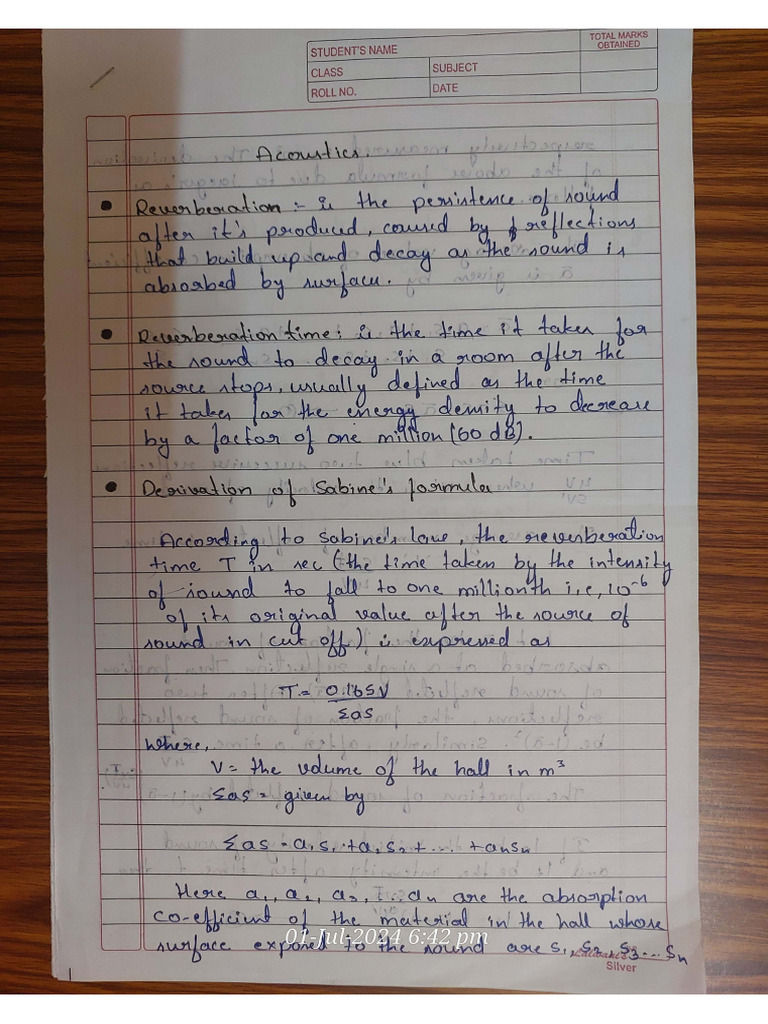 TOTAL MARKS
OBTAINED
STUDENT'S NAME
CLASS
SUBJECT
ROLL NO.
DATE
Acoustics.
• Reverberation :- is the persistence of sound
after it's produced, caused by reflections
that build up and decay as the sound is
absorbed by surface.
• Reverberation time: is the time it takes for
the sound to decay in a room after the
source stops, usually defined as the time
it takes for the energy density to decrease
by a factor of one million (60 dB).
• Derivation of Sabine's formula
According to Sabine's law, the reverberation
time T in sec (the time taken by the intensity
of sound to fall to one millionth i.e, 10⁻⁶
of its original value after the source of
sound in cut off) is expressed as
T = 0.165V
Σas
where,
V = the volume of the hall in m³
Σas = given by
Σas = a₁s₁ + a₂s₂ + ... + aₙsₙ
Here a₁, a₂, a₃, ... aₙ are the absorption
co-efficient of the material in the hall whose
surface exposed to the sound are s₁, s₂, s₃...sₙ
01-Jul-2024 6:42 pm
Silver